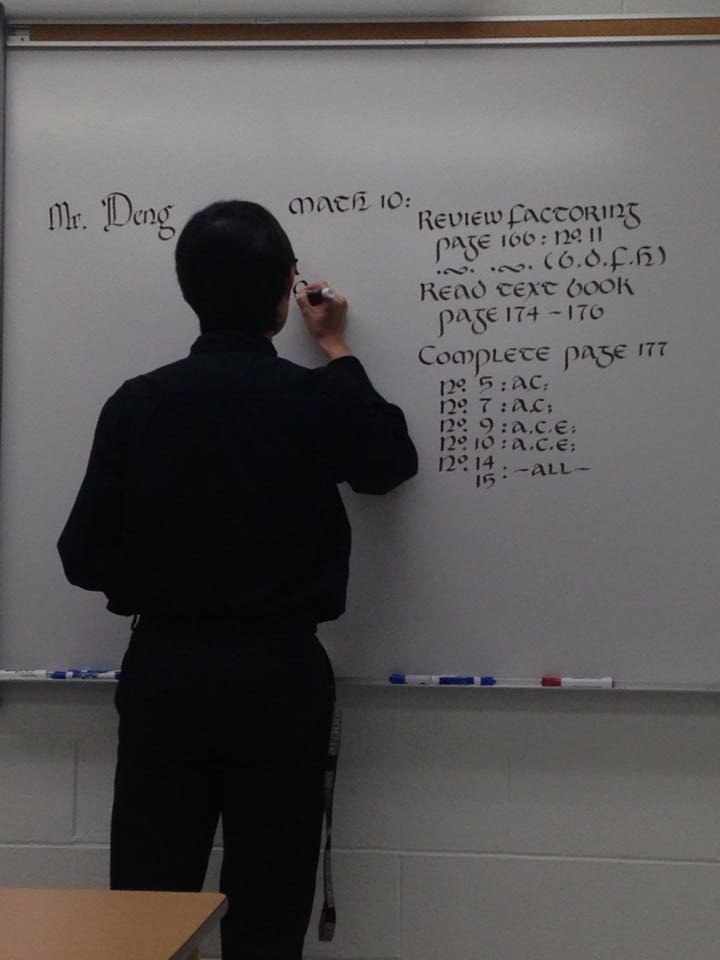 Mr. Deng
Math 10:
Review factoring
page 166 : No. 11
(b.d.f.h)
Read text book
page 174 - 176
Complete page 177
No. 5 : a.c;
No. 7 : a.c;
No. 9 : a.c.e;
No. 10 : a.c.e;
No. 14
15 : -all-